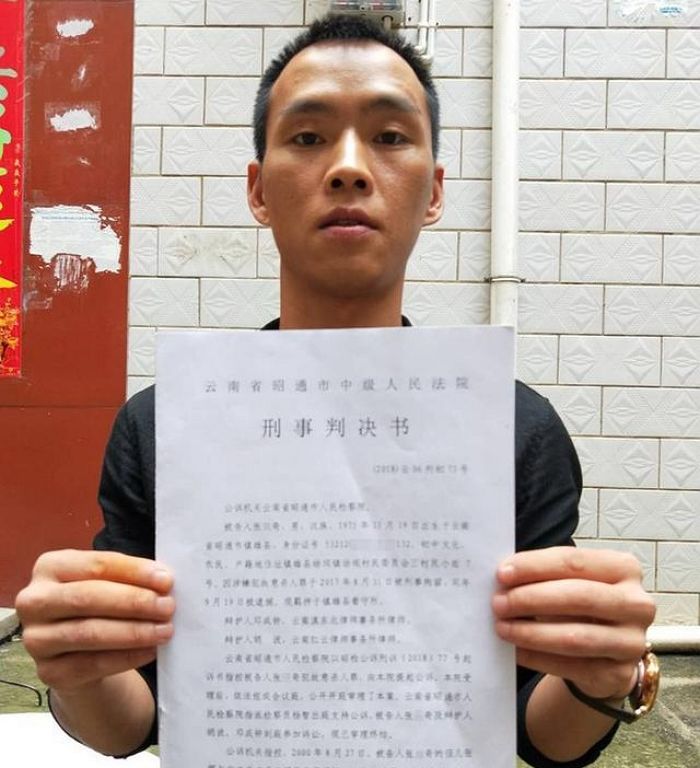 云南省昭通市中级人民法院
刑事判决书
(2018)云06刑初73号
公诉机关云南省昭通市人民检察院。
被告人张 奇，男，汉族，1971年11月19日出生于云南
省昭通市镇雄县，身份证号 53212 132，初中文化，
农民，户籍地住址镇雄县 镇 村民委员会三树民小组7
号。因涉嫌犯故意杀人罪于2017年8月31日被刑事拘留，同年
9月19日被逮捕。现羁押于镇雄县看守所。
辩护人邓成钟，云南滇东北律师事务所律师。
辩护人胡 波，云南红云律师事务所律师。
云南省昭通市人民检察院以昭检公诉刑诉（2018）77号起
诉书指控被告人张 奇犯故意杀人罪，向本院提起公诉。本院受
理后，依法组成合议庭，公开开庭审理了本案。云南省昭通市人
民检察院指派检察员杨智出庭支持公诉，被告人张 奇及辩护人
胡波、邓成钟到庭参加诉讼。现已审理终结。
公诉机关指控，2000年8月27日，被告人张 奇的侄儿张